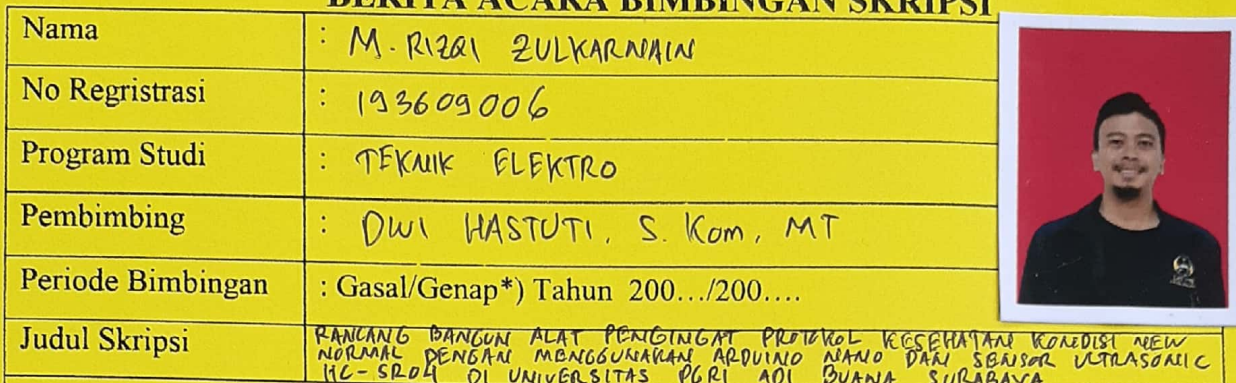 BERITA ACARA BIMBINGAN SKRIPSI
Nama : M. RIZQI ZULKARNAIN
No Regristrasi : 193609006
Program Studi : TEKNIK ELEKTRO
Pembimbing : DWI HASTUTI, S. Kom, MT
Periode Bimbingan : Gasal/Genap*) Tahun 200.../200....
Judul Skripsi RANCANG BANGUN ALAT PENGINGAT PROTOKOL KESEHATAN KONDISI NEW
NORMAL DENGAN MENGGUNAKAN ARDUINO NANO DAN SENSOR ULTRASONIC
HC-SR04 DI UNIVERSITAS PGRI ADI BUANA SURABAYA